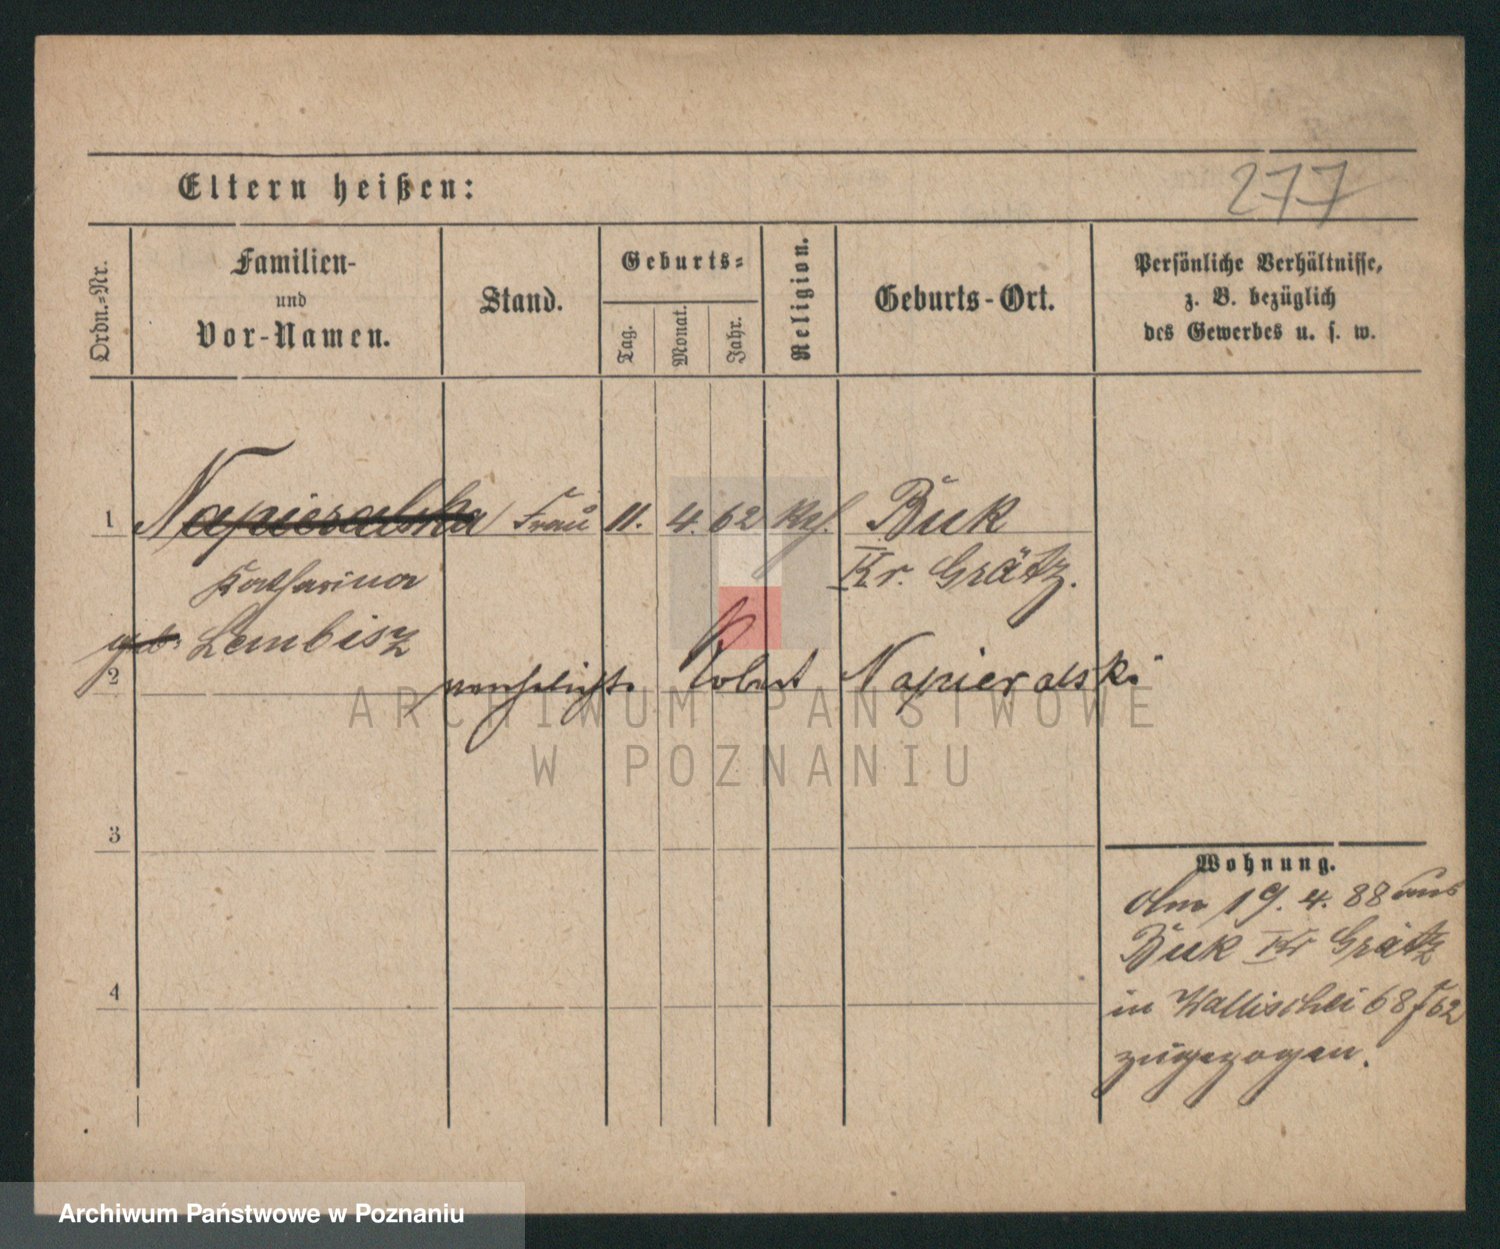 Eltern heißen:
277
Ordn.-Nr.
Familien-
und
Vor-Namen.
Stand.
Geburts-
Tag.
Monat.
Jahr.
Religion.
Geburts-Ort.
Persönliche Verhältnisse,
z. B. bezüglich
des Gewerbes u. s. w.
1 Napieralska Frau 11. 4. 62 Buk
Katharina Kr. Grätz.
geb. Lembisz
2 Robert Napieralski
ARCHIWUM PAŃSTWOWE
W POZNANIU
3
Wohnung.
Am 19. 4. 88 aus
Buk Kr Grätz
4
in Wallischei 68
zugezogen.
Archiwum Państwowe w Poznaniu